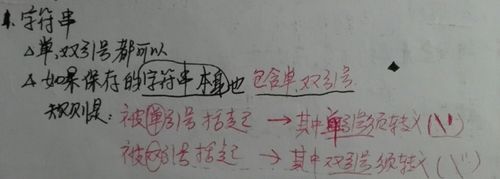 1. 字符串
△单、双引号都可以
△如果保存的字符串本身也 包含单、双引号
规则是：被单引号括起 → 其中单引号须转义(\')
被双引号括起 → 其中双引号须转义(\")